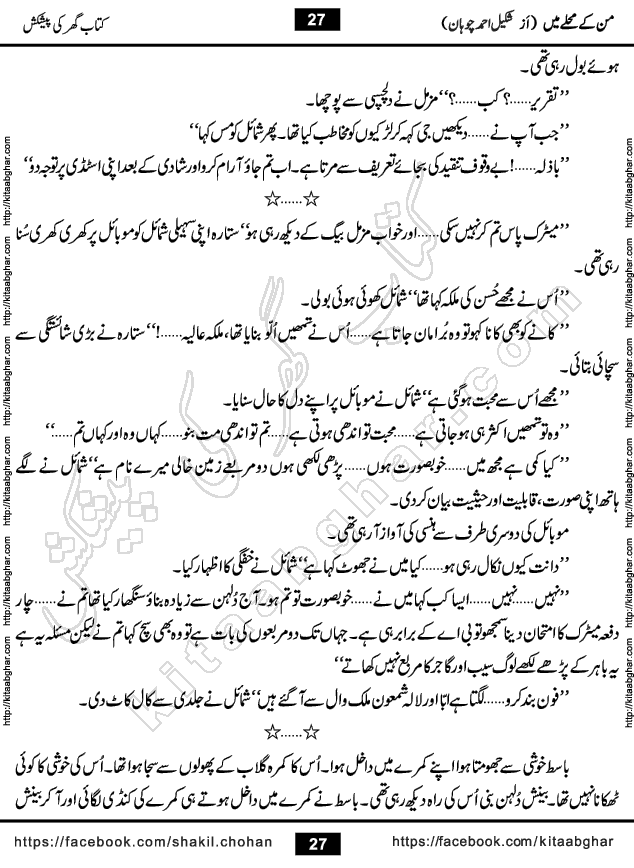 من کے محلے میں (از شکیل احمد چوہان)
27
کتاب گھر کی پیشکش
ہوئے بول رہی تھی۔
’’تقریر......؟ کب......؟‘‘ مزمل نے دلچسپی سے پوچھا۔
’’جب آپ نے...... دیکھیں جی کہہ کر لڑکیوں کو مخاطب کیا تھا۔ پھر شمائل کو مس کہا‘‘
’’باذلہ......! بے وقوف تنقید کی بجائے تعریف سے مرتا ہے۔ اب تم جاؤ آرام کرو اور شادی کے بعد اپنی اسٹڈی پر توجہ دو‘‘
☆......☆
’’میٹرک پاس تم کر نہیں سکی...... اور خواب مزمل بیگ کے دیکھ رہی ہو‘‘ ستارہ اپنی سہیلی شمائل کو موبائل پر کھری کھری سُنا
رہی تھی۔
’’اُس نے مجھے حُسن کی ملکہ کہا تھا‘‘ شمائل کھوئی ہوئی بولی۔
’’کانے کو بھی کانا کہو تو وہ بُرا مان جاتا ہے...... اُس نے تمھیں اُلّو بنایا تھا، ملکہ عالیہ......!‘‘ ستارہ نے بڑی شائستگی سے
سچائی بتائی۔
’’مجھے اُس سے محبت ہو گئی ہے‘‘ شمائل نے موبائل پر اپنے دل کا حال سنایا۔
’’وہ تو تمھیں اکثر ہی ہو جاتی ہے...... محبت تو اندھی ہوتی ہے...... تم تو اندھی مت بنو...... کہاں وہ اور کہاں تم......‘‘
’’کیا کمی ہے مجھ میں...... خوبصورت ہوں...... پڑھی لکھی ہوں دو مربعے زمین خالی میرے نام ہے‘‘ شمائل نے لگے
ہاتھ اپنی صورت، قابلیت اور حیثیت بیان کر دی۔
موبائل کی دوسری طرف سے ہنسی کی آواز آ رہی تھی۔
’’دانت کیوں نکال رہی ہو...... کیا میں نے جھوٹ کہا ہے‘‘ شمائل نے خفگی کا اظہار کیا۔
’’نہیں...... نہیں...... ایسا کب کہا میں نے...... خوبصورت تو تم ہو۔ آج دُلہن سے زیادہ بناؤ سنگھار کیا تھا تم نے...... چار
دفعہ میٹرک کا امتحان دینا سمجھو تو بی اے کے برابر ہی ہے۔ جہاں تک دو مربعوں کی بات ہے تو وہ بھی سچ کہا تم نے لیکن مسئلہ یہ ہے
یہ باہر کے پڑھے لکھے لوگ سیب اور گاجر کا مربع نہیں کھاتے‘‘
’’فون بند کرو...... لگتا ہے ابّا اور لالہ شمعون ملک وال سے آ گئے ہیں‘‘ شمائل نے جلدی سے کال کاٹ دی۔
☆......☆
باسط خوشی سے جھومتا ہوا اپنے کمرے میں داخل ہوا۔ اُس کا کمرہ گلاب کے پھولوں سے سجا ہوا تھا۔ اُس کی خوشی کا کوئی
ٹھکانا نہیں تھا۔ بینش دُلہن بنی اُس کی راہ دیکھ رہی تھی۔ باسط نے کمرے میں داخل ہوتے ہی کمرے کی کنڈی لگائی اور آ کر بینش
http://kitaabghar.com http://kitaabghar.com http://kitaabghar.com http://kitaabghar.com http://kitaabghar.com http://kitaabghar.com
http://kitaabghar.com http://kitaabghar.com http://kitaabghar.com http://kitaabghar.com http://kitaabghar.com http://kitaabghar.com
کتاب گھر کی پیشکش
kitaabghar.com
https://facebook.com/shakil.chohan
27
https://facebook.com/kitaabghar